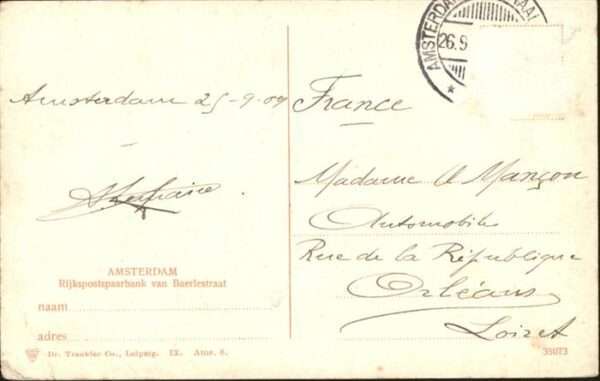 AMSTERDAM
26.9
Amsterdam 25-9-09
France
Madame A Mançon
Automobiles
Rue de la République
Orléans
Loiret
AMSTERDAM
Rijkspostspaarbank van Baerlestraat
naam
adres
Dr. Trenkler Co., Leipzig. IX. Ams. 8.
35073